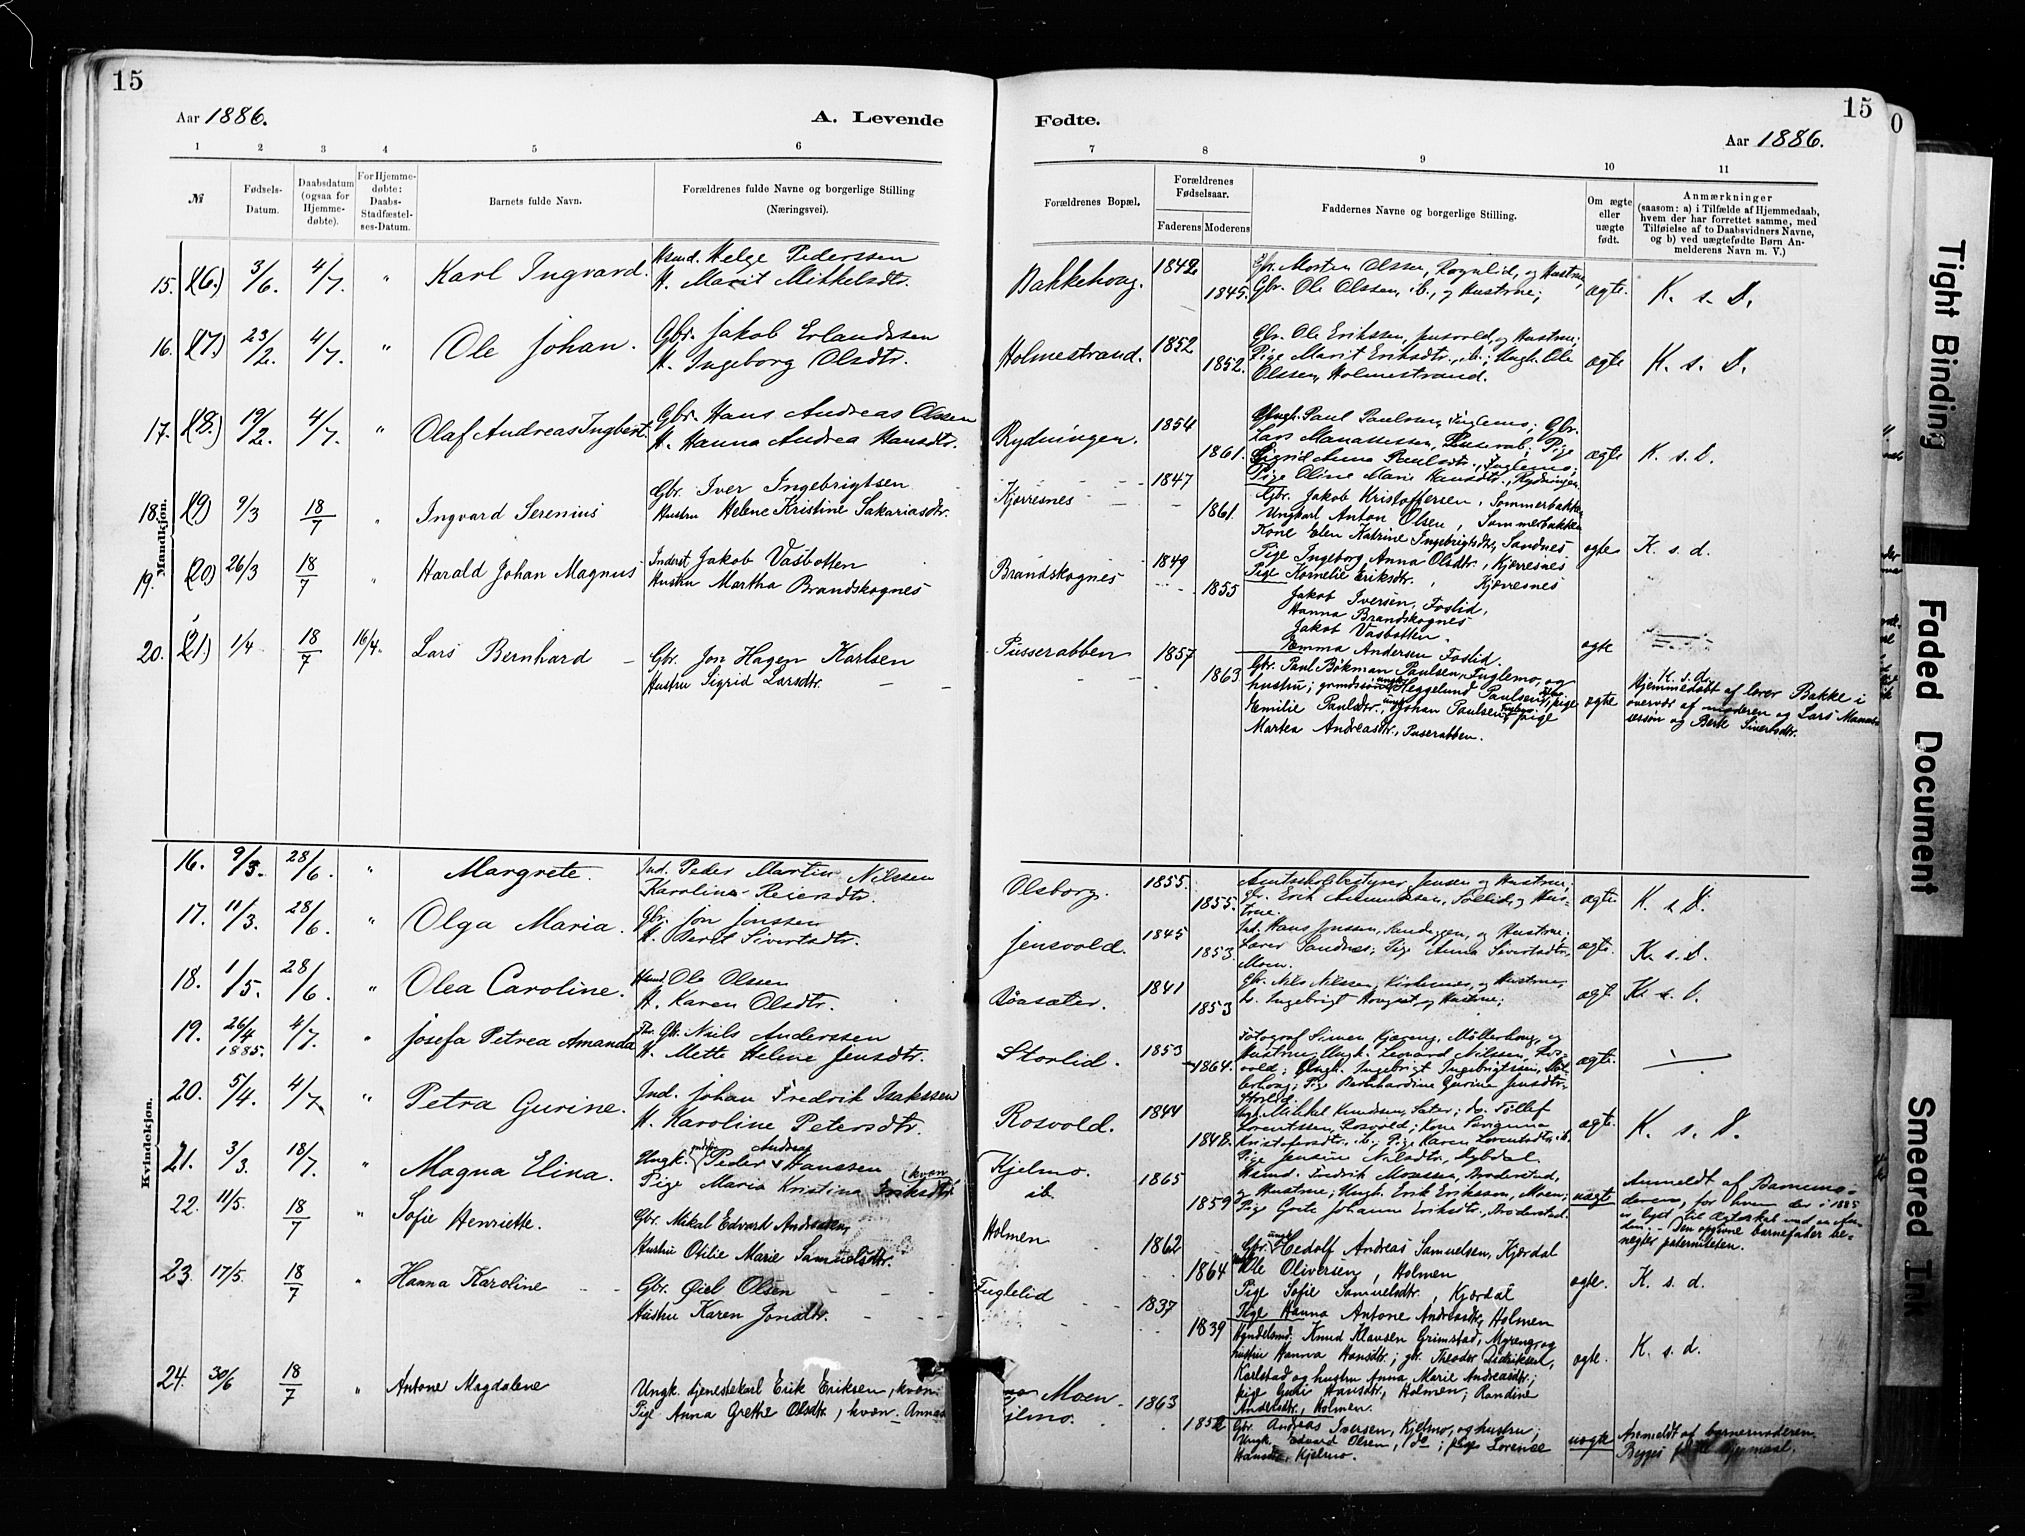 15
Aar 1886.
A. Levende
1 2 3 4 5 6
№
Fødsels-
Datum.
Daabsdatum
(ogsaa for
Hjemme-
døbte).
For Hjemme-
døbte:
Daabs-
Stadfæstel-
ses-Datum.
Barnets fulde Navn.
Forældrenes fulde Navne og borgerlige Stilling
(Næringsvei).
Mandkjøn.
15. (16.) 3/6. 4/7. " Karl Ingvard.
Hsmd. Helge Pederssen
H. Marit Mikkelsdtr.
16. (17.) 23/2. 4/7. " Ole Johan.
Gbr. Jakob Erlandssen
H. Ingeborg Olsdtr.
17. (18.) 19/2. 4/7. " Olaf Andreas Ingbert.
Gbr. Hans Andreas Olssen
H. Hanna Andrea Hansdtr.
18. (19) 9/3 18/7 " Ingvard Serenius
Gbr. Iver Ingebrigtsen
Hustru Helene Kristine Sakariasdtr.
19. (20) 26/3 18/7 " Harald Johan Magnus
Inderst Jakob Vasbotten
Hustru Martha Brandskognes
20. (21) 1/4 18/7 16/4 Lars Bernhard
Gbr. Jon Hagen Karlsen
Hustru Sigrid Larsdtr.
Kvindekjøn.
16. 9/3. 28/6. " Margrete.
Ind. Peder Martin Nilssen
Karoline Reiersdtr.
17. 11/3. 28/6. " Olga Maria.
Gbr. Jon Jonssen
H. Beret Sivertsdtr.
18. 1/5. 28/6. " Olea Caroline.
Hsmd. Ole Olssen
H. Karen Olsdtr.
19. 26/4 1885. 4/7. " Josefa Petrea Amanda
Fhv. Gbr. Niels Anderssen
H. Mette Helene Jensdtr.
20. 5/4. 4/7. " Petra Gurine.
Ind. Johan Fredrik Isakssen
H. Karoline Petersdtr.
21. 3/3. 18/7. " Magna Elina.
Ungk. Peder Andreas Hanssen
Pige Maria Kristina Eriksdtr. (kvæn)
22. 11/5. 18/7 " Sofie Henriette.
Gbr. Mikal Edvard Andreassen,
Hustru Otilie Marie Samuelsdtr.
23. 17/5. 18/7 " Hanna Karoline
Gbr. Øiel Olsen
Hustru Karen Jonsdtr.
24. 30/6 18/7 " Antone Magdalene
Ungk. tjenestekarl Erik Eriksen, kvæn
Pige Anna Grethe Olsdtr, kvæn
15
Fødte.
Aar 1886.
7 8 9 10 11
Forældrenes Bopæl.
Forældrenes
Fødselsaar.
Faderens Moderens
Faddernes Navne og borgerlige Stilling.
Om ægte
eller
uægte
født.
Anmærkninger
(saasom: a) i Tilfælde af Hjemmedaab,
hvem der har forrettet samme, med
Tilføielse af to Daabsvidners Navne,
og b) ved uægtefødte Børn An-
melderens Navn m. V.)
Bakkehaug. 1842 1845.
Gbr. Morten Olssen, Rognlid, og Hustru,
Gbr. Ole Olssen, ib., og Hustrue;
ægte. K. s. D.
Holmestrand. 1852 1852.
Gbr. Ole Erikssen, Jensvold, og Hustrue;
Pige Marit Eriksdtr., ib.; Ungk. Ole
Olssen, Holmestrand.
ægte K. s. D.
Rydningen. 1854 1861.
Ungk. Paul Paulsen, Fuglemo; Gbr.
Lars Manassessen, Pusserab; Pige
Sigrid Anna Paulsdtr., Fuglemo;
Pige Oline Marie Hansdtr., Rydningen
ægte K. s. D.
Kjørresnes 1847 1861.
Gbr. Jakob Kristoffersen, Sommerbakken
Ungkarl Anton Olsen, Sommerbakken
Kone Elen Katrine Ingebrigtsdtr, Sandnes
Pige Ingeborg Anna Olsdtr, Kjørresnes
Pige Kornelie Eriksdtr., Kjørresnes
ægte K. s. d.
Brandskognes 1849 1855
Jakob Iversen, Foslid,
Hanna Brandskognes
Jakob Vasbotten.
Emma Andersen Foslid.
ægte
Pusserabben 1857 1863
Gbr. Paul Bökman Paulsen, Fuglemo, og
hustru; Heggelund Paulsen, pige
Emilie Paulsdtr., ungk. Johan Paulsen, pige
Martea Andreasdtr, Puserabben.
ægte K. s. d.
Hjemmedøbt af lærer Bakke i
overvær af moderen og Lars
og Berte Sivertsdtr.
Olsborg. 1855. 1855.
Amtsskolebestyrer Jensen og Hustrue,
Gbr. Erik Asmundssen, Sollid, og Hus-
true.
ægte. K. s. D.
Jensvold. 1845 1853.
Ind. Hans Jonssen, og Hustrue;
Lærer Sandnes; Pige Anna Sivertsdtr,
Moen.
ægte. K. s. D.
1841 1853
Gbr. Nils Nilssen, Kirknes, og Hustrue,
do. Ingebrigt og Hustrue;
ægt. K. s. D.
Storlid. 1853 1864.
Fotograf Simen Kjæreng, Møllerhaug, og
Hustrue, Ungk. Leonard Nilssen,
Ungk. Ingebrigt Ingebrigtssen,
Pige Bernhardine Gurine Jensdtr,
Storlid.
ægte.
Rosvold. 1844 1848.
Mikkel Knudsen, Sæter; do. Tollef
Lorentssen, Rosvold; Kone
Kristofersdtr, ib.; Pige Karen Lorentsdtr. ib.
Pige Jensine Nilsdtr,
ægte. K. s. D.
Kjelmo.
ib. 1865 1859
Hsmd. Fredrik Monssen, Broderstad,
og Hustrue; Ungk. Erik Erikssen, Moen;
Pige Grete Johanne Eriksdtr, Broderstad.
uægte
Anmeldt af Barnemo-
deren, for hvem der i 1885
er lyst til Ægteskab med en An-
den. – Den opgivne barnefader be-
negter paterniteten.
Holmen 1862 1864
Gbr. Hedolf Andreas Samuelsen, Kjørdal
Ole Oliversen, Holmen
Pige Sofie Samuelsdtr, Kjørdal
Pige Hanna Antone Andreasdtr, Holmen
ægte. K. s. d.
Fuglelid 1837 1839
Handelsmd. Knud Klausen Grimstad, Myreng, og
hustru Hanna Hansdtr.; gbr. Theodor Didriksen,
Karlstad og hustru Anna Marie Andreasdtr;
pige Hansdtr, Holmen; Randine
Andersdtr, Holmen.
ægte. K. s. d.
Moen
Kjelmo. 1863 1852
Gbr. Andreas Iversen, Kjelmo, og hustru;
Ungk. Edvard Olsen, do; pige Lorense
Hansdtr, Kjelmo.
uægte
Anmeldt af barnemoderen
0
Tight Binding
Faded Document
Smeared Ink